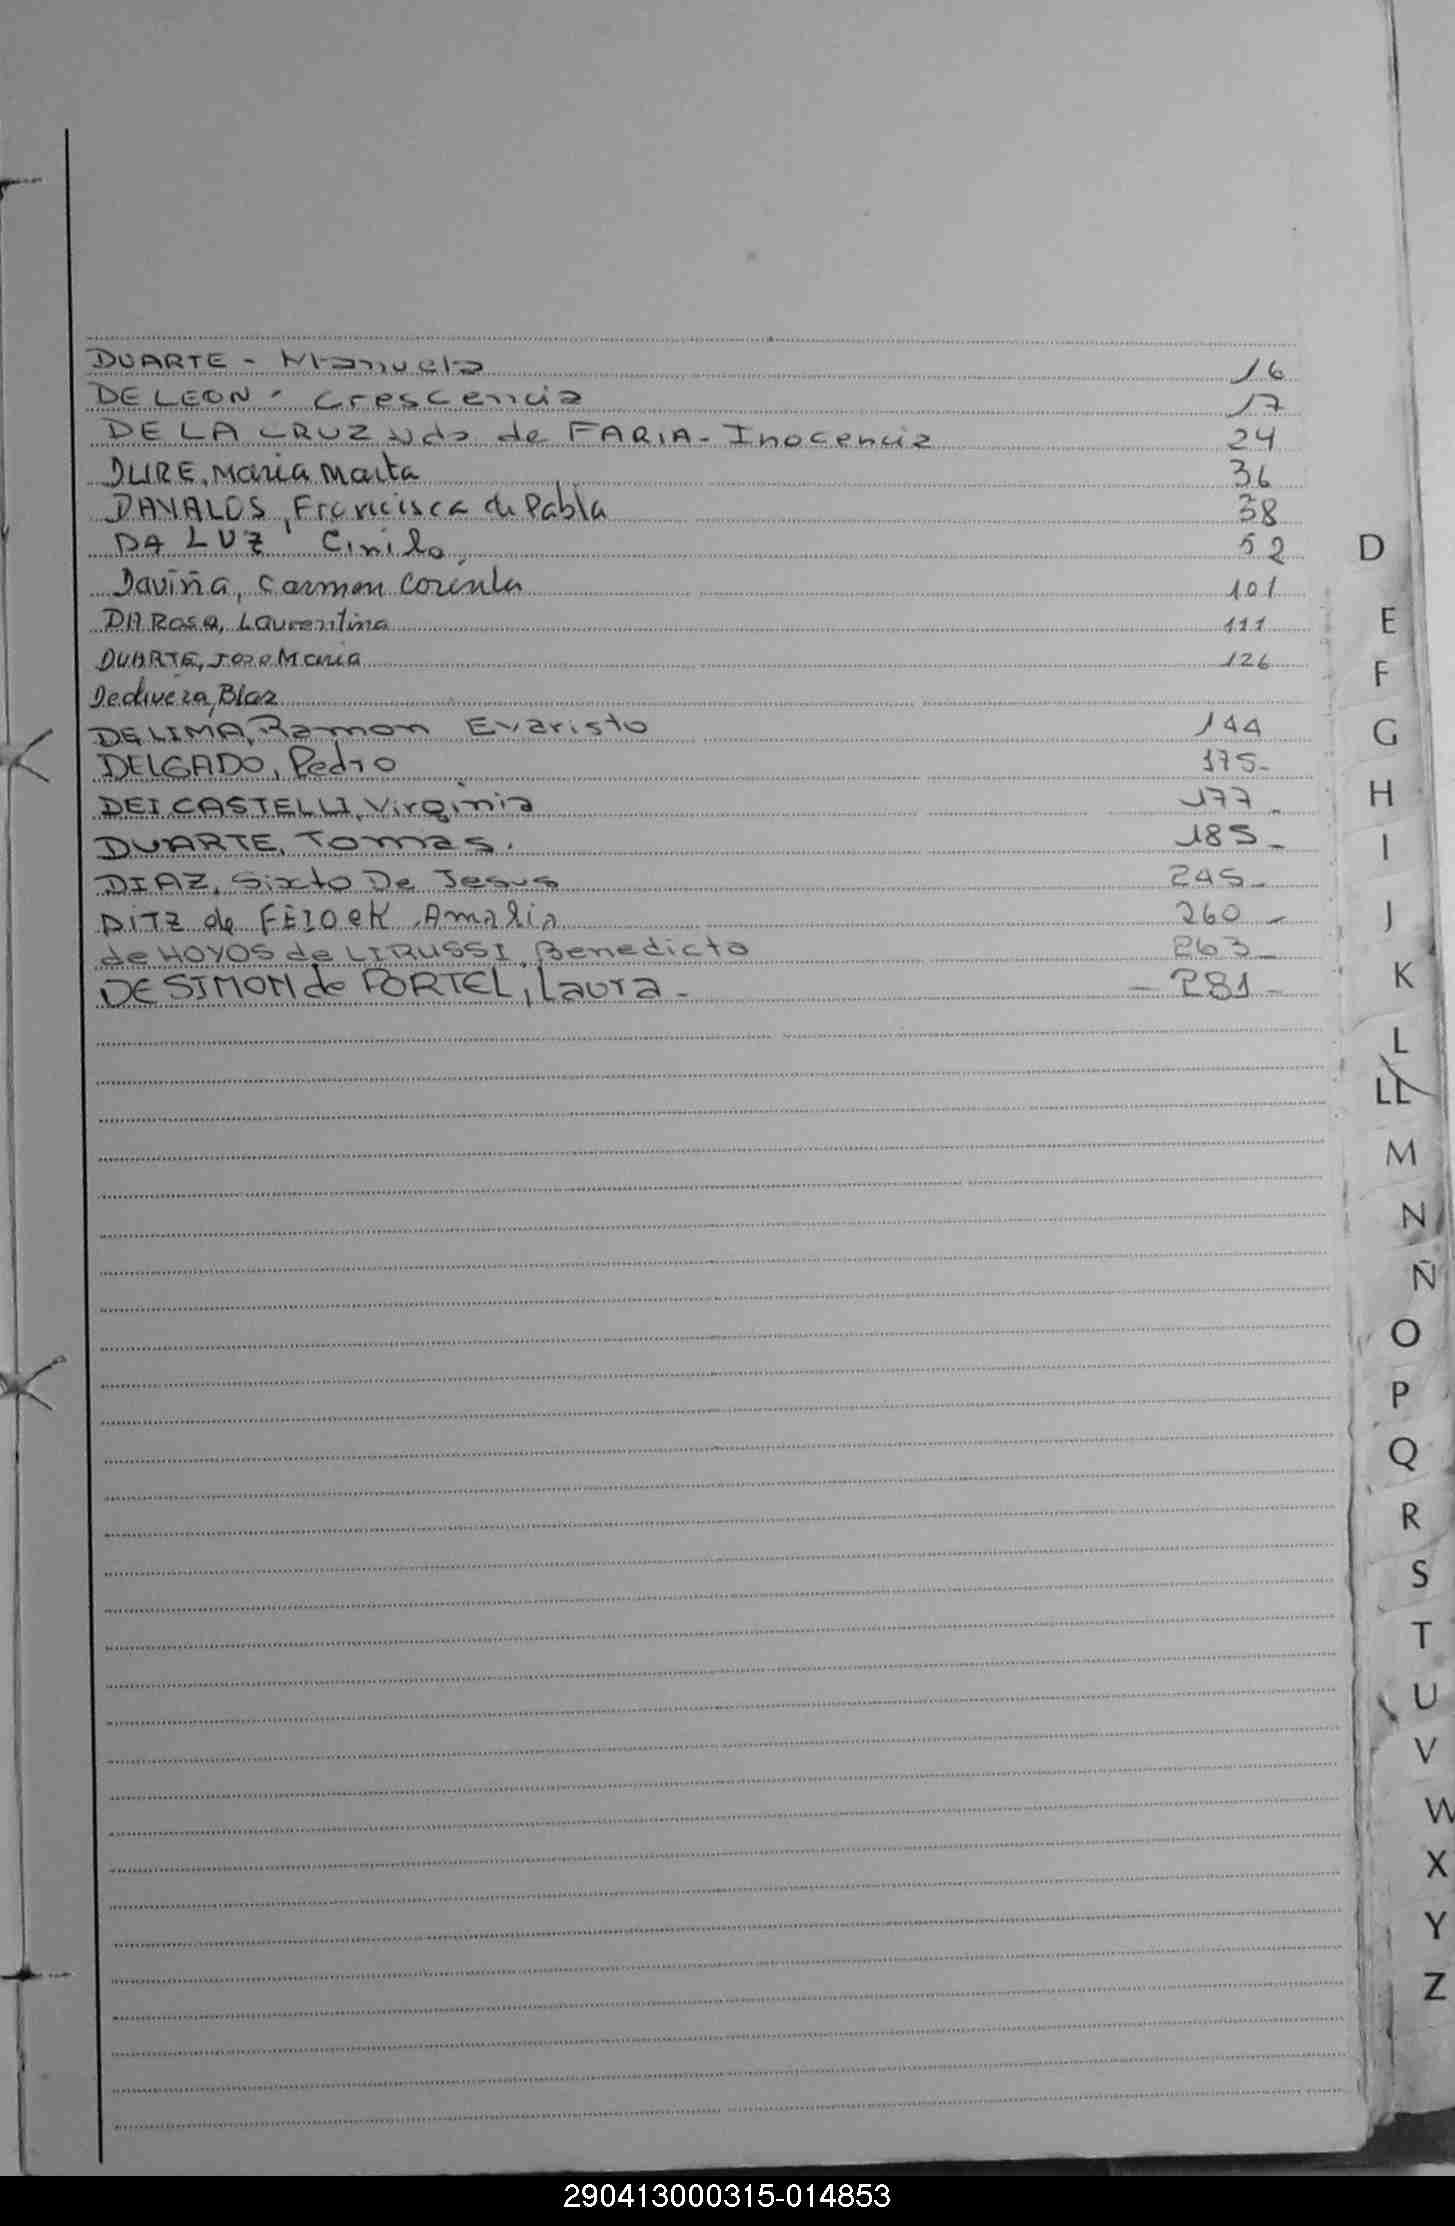 DUARTE - Manuela 16
DE LEON - Crescencia 17
DE LA CRUZ vda de FARIA - Inocencia 24
DURE, Maria Marta 36
DAVALOS, Francisca de Pabla 38
DA LUZ Cirilo 52
Daviña, Carmen Corinta 101
DA Rosa, Laurentina 111
DUARTE, Jose Maria 126
Blas
DE LIMA, Ramon Evaristo 144
DELGADO, Pedro 175-
DEI CASTELLI, Virginia 177-
DUARTE, Tomas. 185-
DIAZ, Sixto De Jesus 245-
DITZ de Amalia 260-
de HOYOS de LIRUSSI, Benedicta 263-
DE SIMON de PORTEL, Laura - - 281-
D
E
F
G
H
I
J
K
L
LL
M
N
Ñ
O
P
Q
R
S
T
U
V
W
X
Y
Z
290413000315-014853